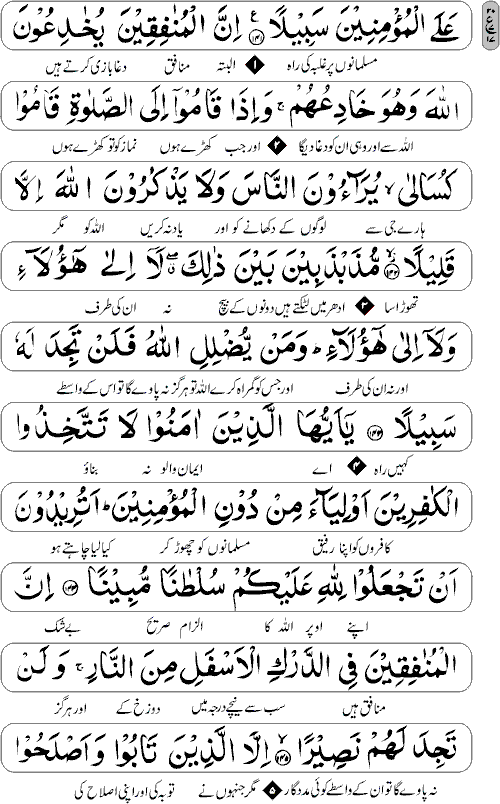 عَلَى الْمُؤْمِنِيْنَ سَبِيْلًا ﴿۱۴۱﴾ اِنَّ الْمُنٰفِقِيْنَ يُخٰدِعُوْنَ
مسلمانوں پر غلبہ کی راہ ۱ البتہ منافق دغا بازی کرتے ہیں
اللّٰهَ وَهُوَ خَادِعُهُمْ ۚ وَاِذَا قَامُوْۤا اِلَى الصَّلٰوةِ قَامُوْا
اللہ سے اور وہی ان کو دغا دیگا ۲ اور جب کھڑے ہوں نماز کو تو کھڑے ہوں
كُسَالٰى ۙ يُرَآءُوْنَ النَّاسَ وَلَا يَذْكُرُوْنَ اللّٰهَ اِلَّا
ہارے جی سے لوگوں کے دکھانے کو اور یاد نہ کریں اللہ کو مگر
قَلِيْلًا ﴿۱۴۲﴾ مُّذَبْذَبِيْنَ بَيْنَ ذٰلِكَ ۖ لَاۤ اِلٰى هٰۤؤُلَآءِ
تھوڑا سا ۳ ادھر میں لٹکتے ہیں دونوں کے بیچ نہ ان کی طرف
وَلَاۤ اِلٰى هٰۤؤُلَآءِ ؕ وَمَنْ يُّضْلِلِ اللّٰهُ فَلَنْ تَجِدَ لَهٗ
اور نہ ان کی طرف اور جس کو گمراہ کرے اللہ تو ہرگز نہ پاوے گا تو اس کے واسطے
سَبِيْلًا ﴿۱۴۳﴾ يٰۤاَيُّهَا الَّذِيْنَ اٰمَنُوْا لَا تَتَّخِذُوا
کہیں راہ ۴ اے ایمان والو نہ بناؤ
الْكٰفِرِيْنَ اَوْلِيَآءَ مِنْ دُوْنِ الْمُؤْمِنِيْنَ ؕ اَتُرِيْدُوْنَ
کافروں کو اپنا رفیق مسلمانوں کو چھوڑ کر کیا لیا چاہتے ہو
اَنْ تَجْعَلُوْا لِلّٰهِ عَلَيْكُمْ سُلْطٰنًا مُّبِيْنًا ﴿۱۴۴﴾ اِنَّ
اپنے اوپر اللہ کا الزام صریح بےشک
الْمُنٰفِقِيْنَ فِى الدَّرْكِ الْاَسْفَلِ مِنَ النَّارِ ۚ وَلَنْ
منافق ہیں سب سے نیچے درجہ میں دوزخ کے اور ہرگز
تَجِدَ لَهُمْ نَصِيْرًا ﴿۱۴۵﴾ اِلَّا الَّذِيْنَ تَابُوْا وَاَصْلَحُوْا
نہ پاوے گا تو ان کے واسطے کوئی مددگار ۵ مگر جنہوں نے توبہ کی اور اپنی اصلاح کی